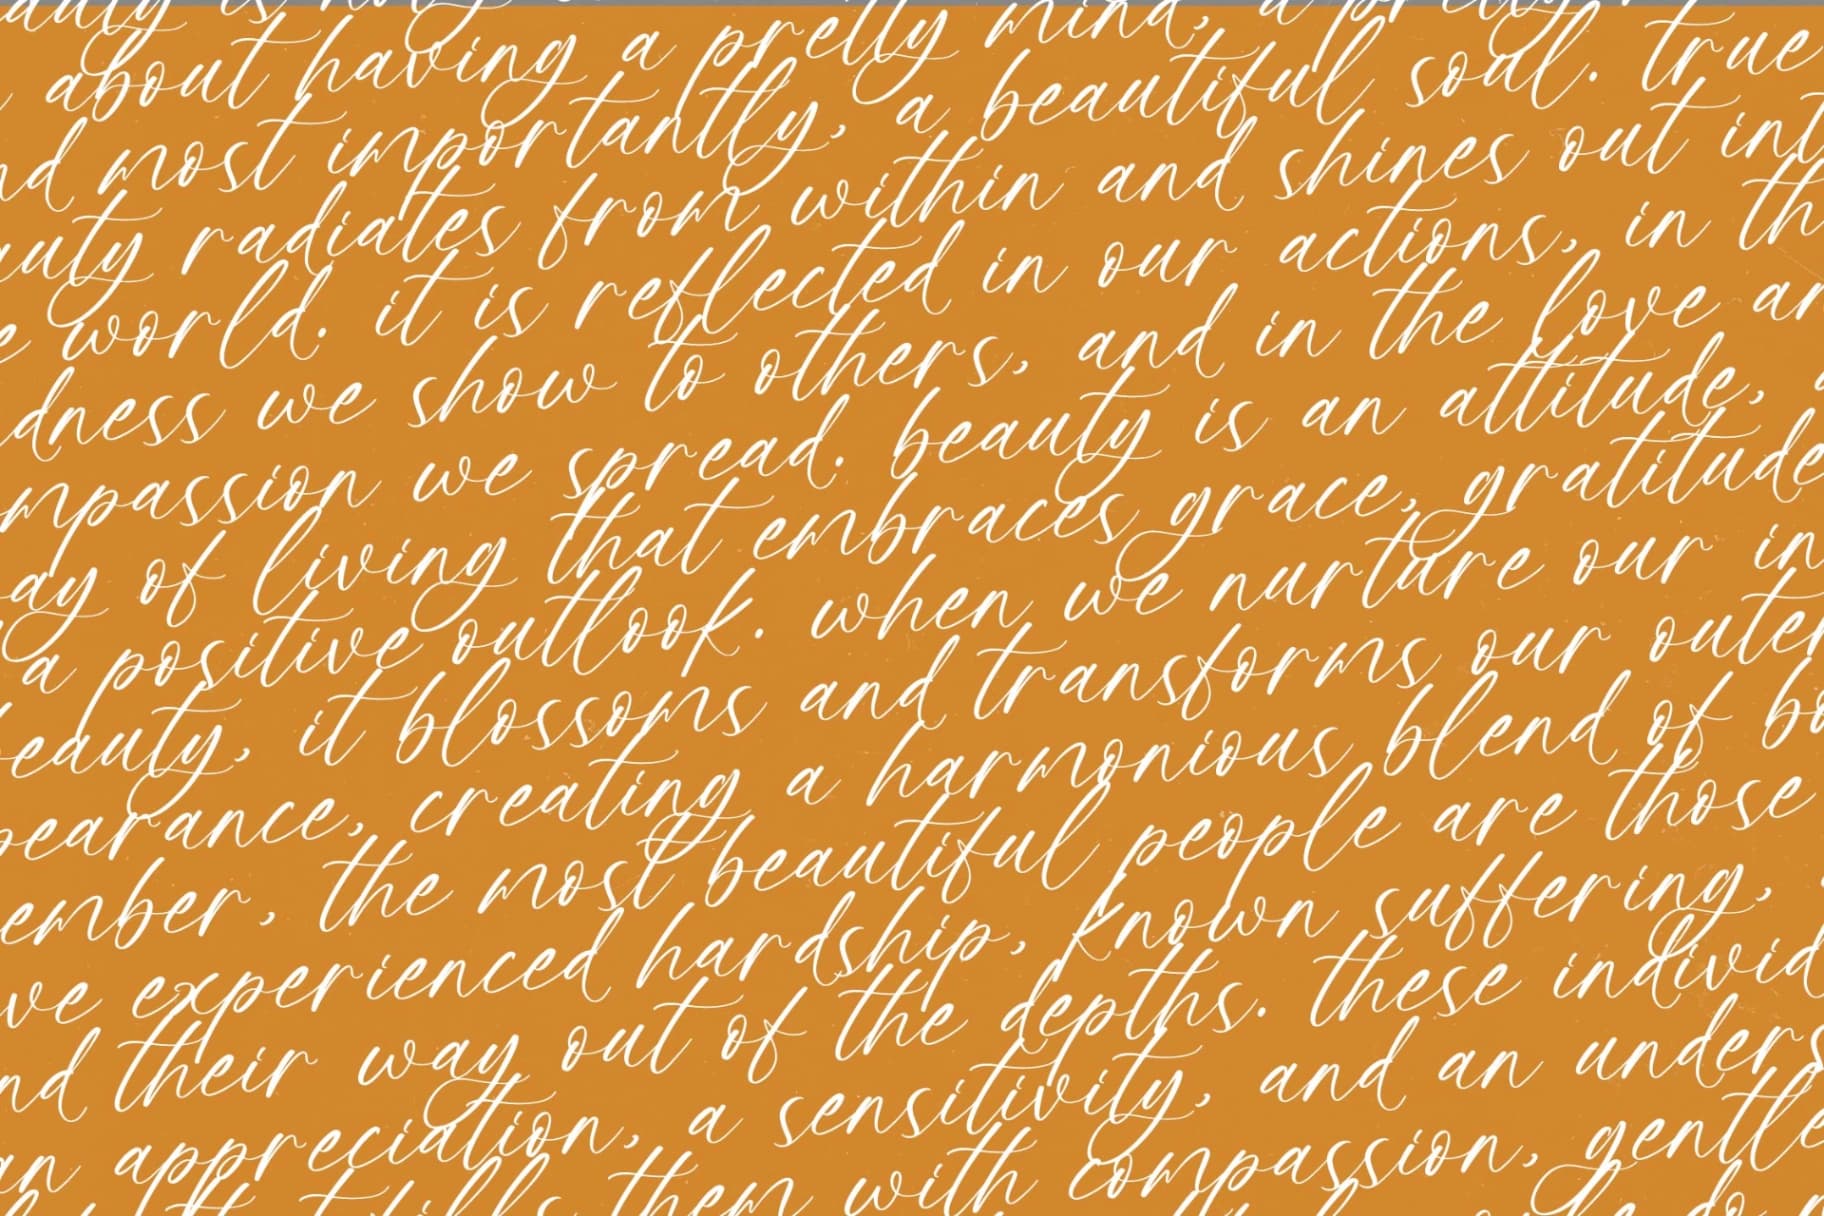 auty is
about having a pretty mind, a pretty
nd most importantly, a beautiful soul. true
auty radiates from within and shines out int
e world. it is reflected in our actions, in th
dness we show to others, and in the love an
mpassion we spread. beauty is an attitude, a
ay of living that embraces grace, gratitude
a positive outlook. when we nurture our in
eauty, it blossoms and transforms our outer
pearance, creating a harmonious blend of bo
ember, the most beautiful people are those
ve experienced hardship, known suffering,
nd their way out of the depths. these individ
an appreciation, a sensitivity, and an unders
fills them with compassion, gentle